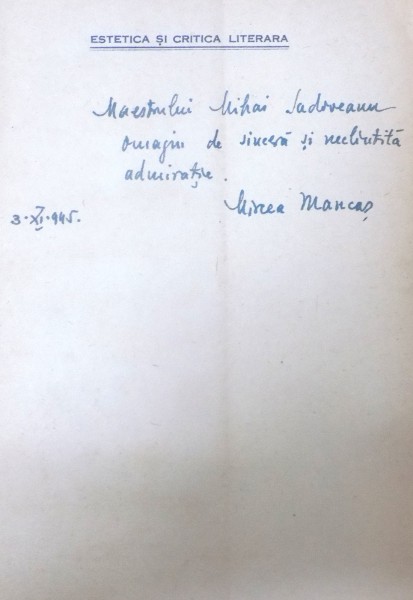 ESTETICA ȘI CRITICA LITERARA
Maestrului Mihai Sadoveanu
omagiu de sinceră și neclintită
admirație.
Mircea Mancaș
3.XI.945.